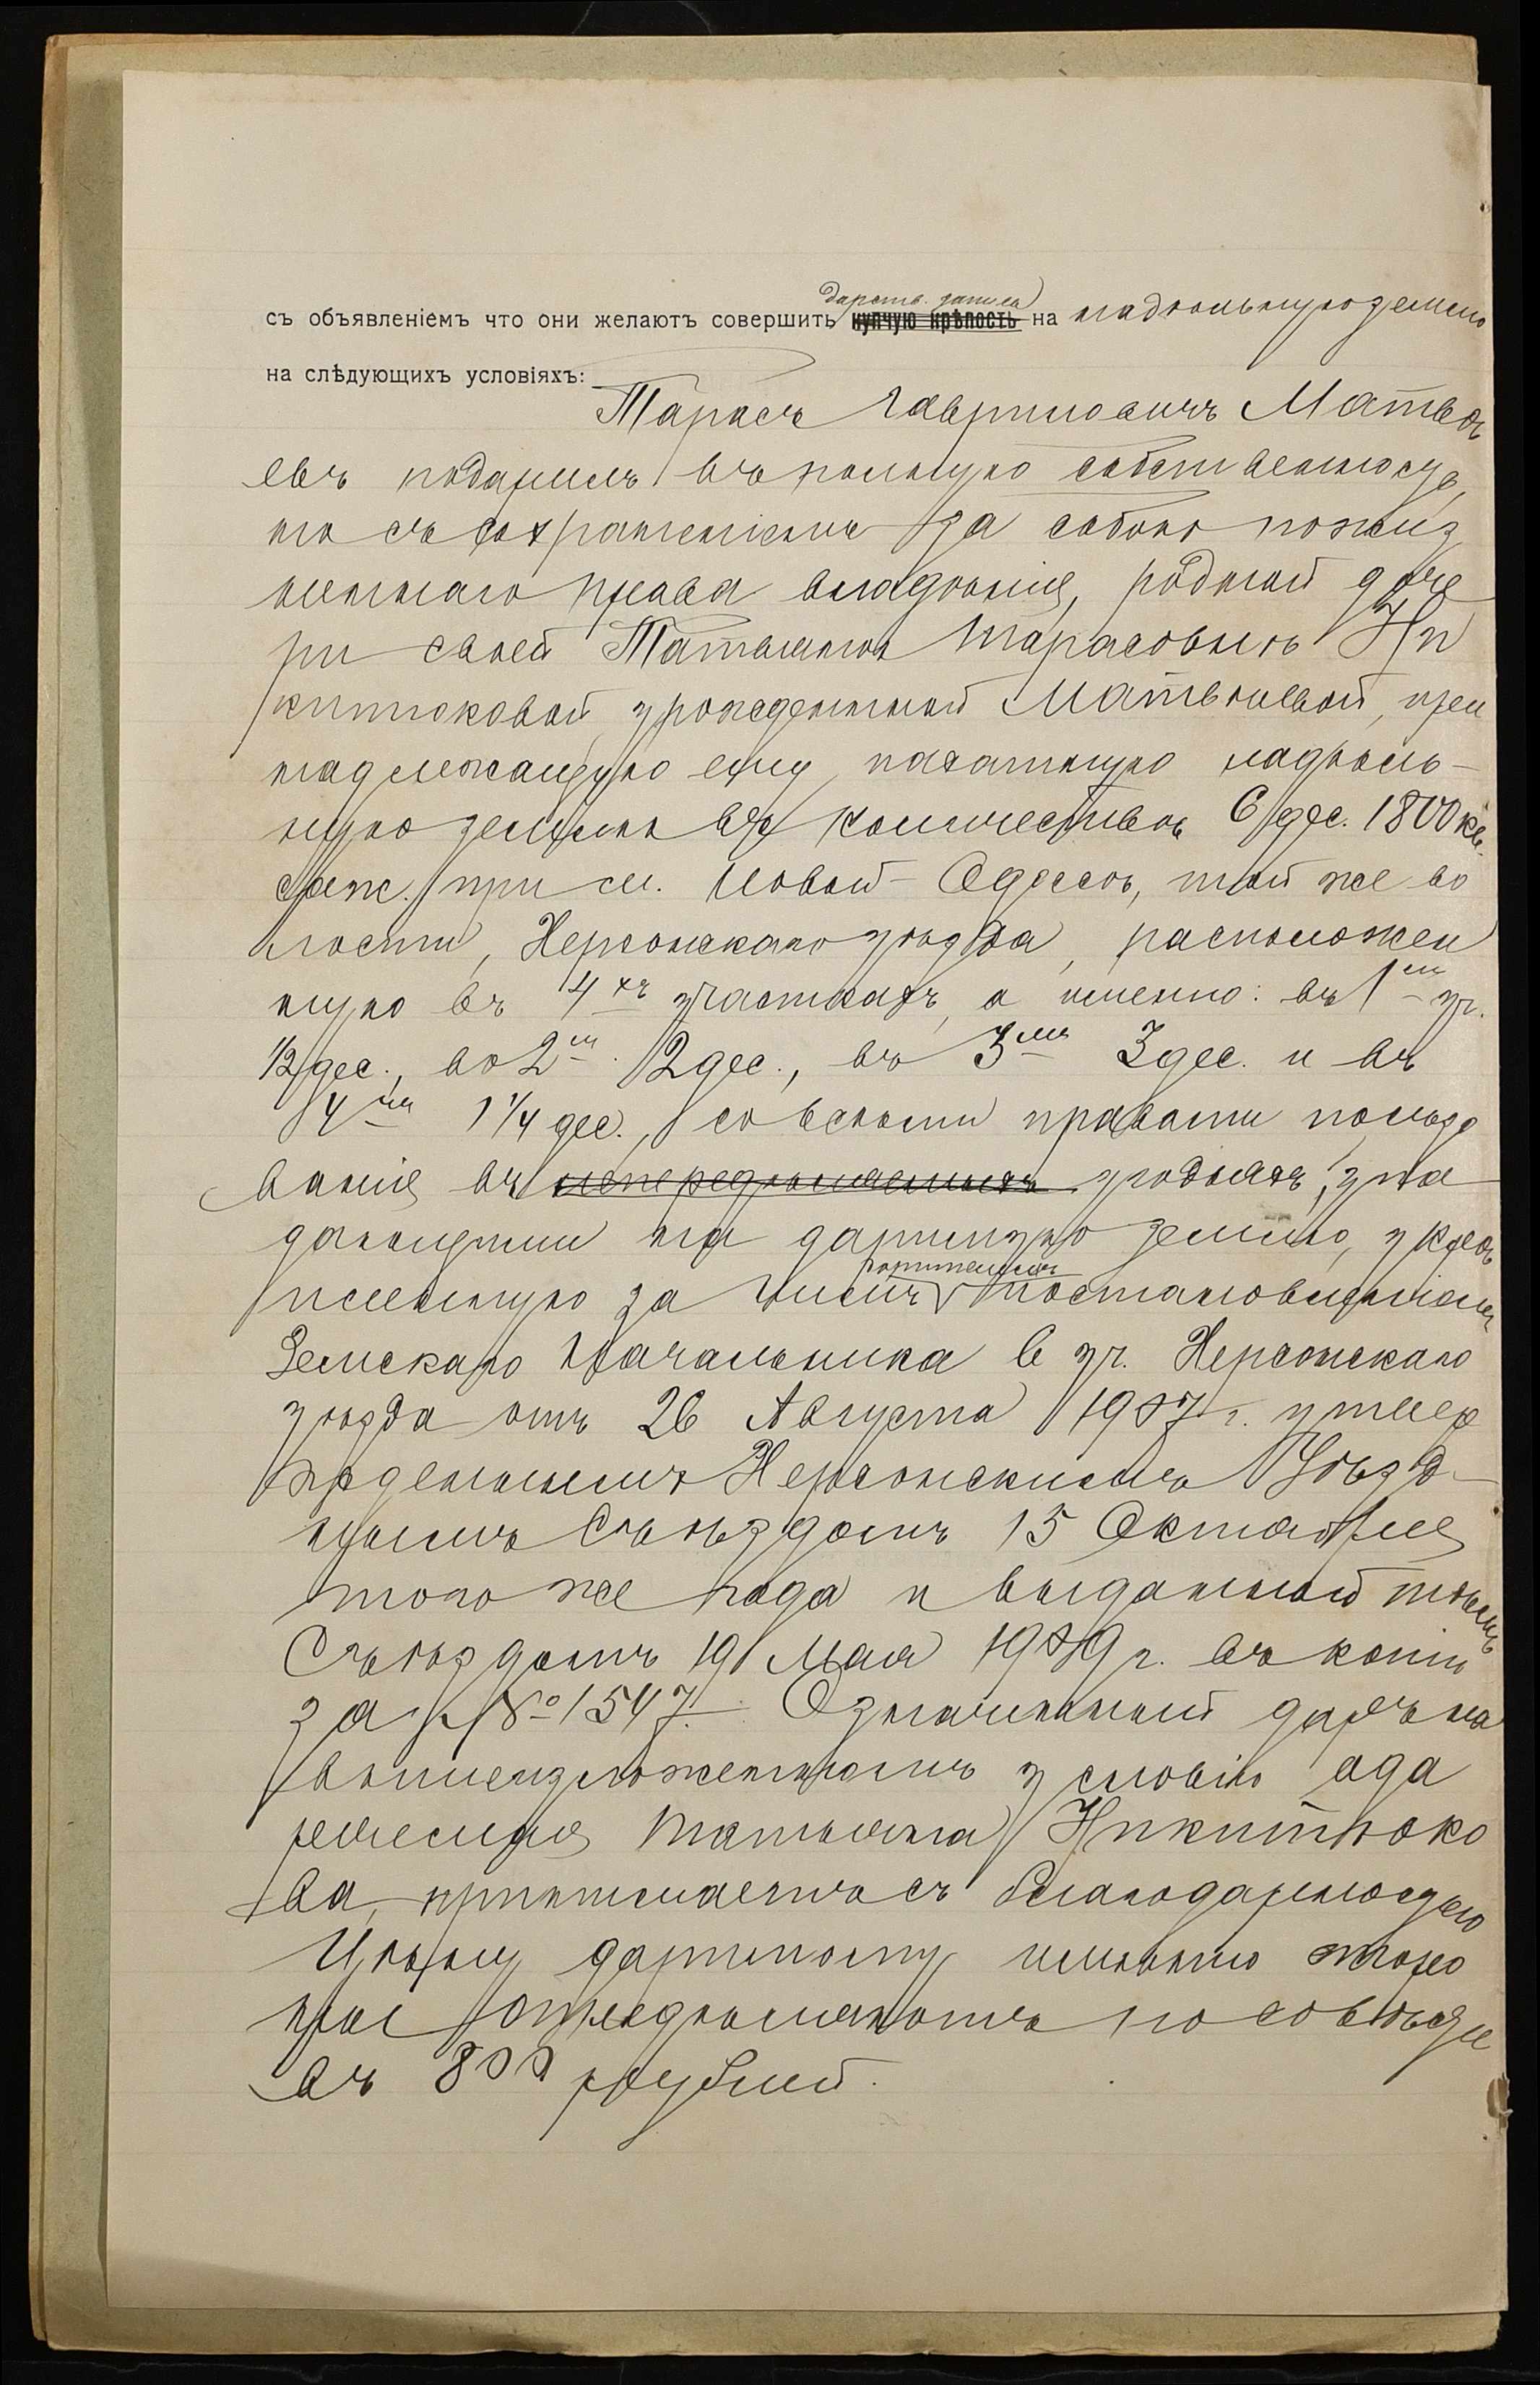 дарств. запись
съ объявленіемъ что они желаютъ совершить купчую крѣпость на надѣльную землю
на слѣдующихъ условіяхъ:
Тарасъ Гавриловичъ Матвѣ
евъ подарилъ въ полную собственность,
но съ сохраненіемъ за собою пожиз
неннаго права владѣнія, родной доче
ри своей Татьянѣ Тарасовнѣ Ни
китюковой, урожденной Матвѣевой, прин
надлежащую ему пахатную надѣль-
ную землю въ количествѣ 6 дес. 1800 кв.
саж. при м. Новой-Одессѣ, той же во
лости, Херсонскаго уѣзда, расположен
ную въ 4хъ участкахъ, а именно: въ 1мъ уч.
1/2 дес., во 2мъ 2 дес., въ 3мъ 3 дес. и въ
4мъ 1 1/4 дес., со всѣми правами пользо
ванія въ непередѣляемыхъ угодьяхъ, упа
дающими на даримую землю, укрѣ
пленную за нимъ дарителемъ постановленіемъ
Земскаго Начальника 6 уч. Херсонскаго
уѣзда отъ 26 Августа 1907 г. утвер
жденнымъ Херсонскимъ Уѣзд-
нымъ Съѣздомъ 15 Октября
того же года и выданной тѣмъ
Съѣздомъ 19 Мая 1909 г. въ копіи
за № 1547. Означенный даръ на
вышеизложенномъ условіи ода
ряемая Татьяна Никитюко
ва, принимаетъ съ благодарностью
Цѣну даримому имѣнію сторо
ны опредѣляютъ по совѣсти
въ 800 рублей.